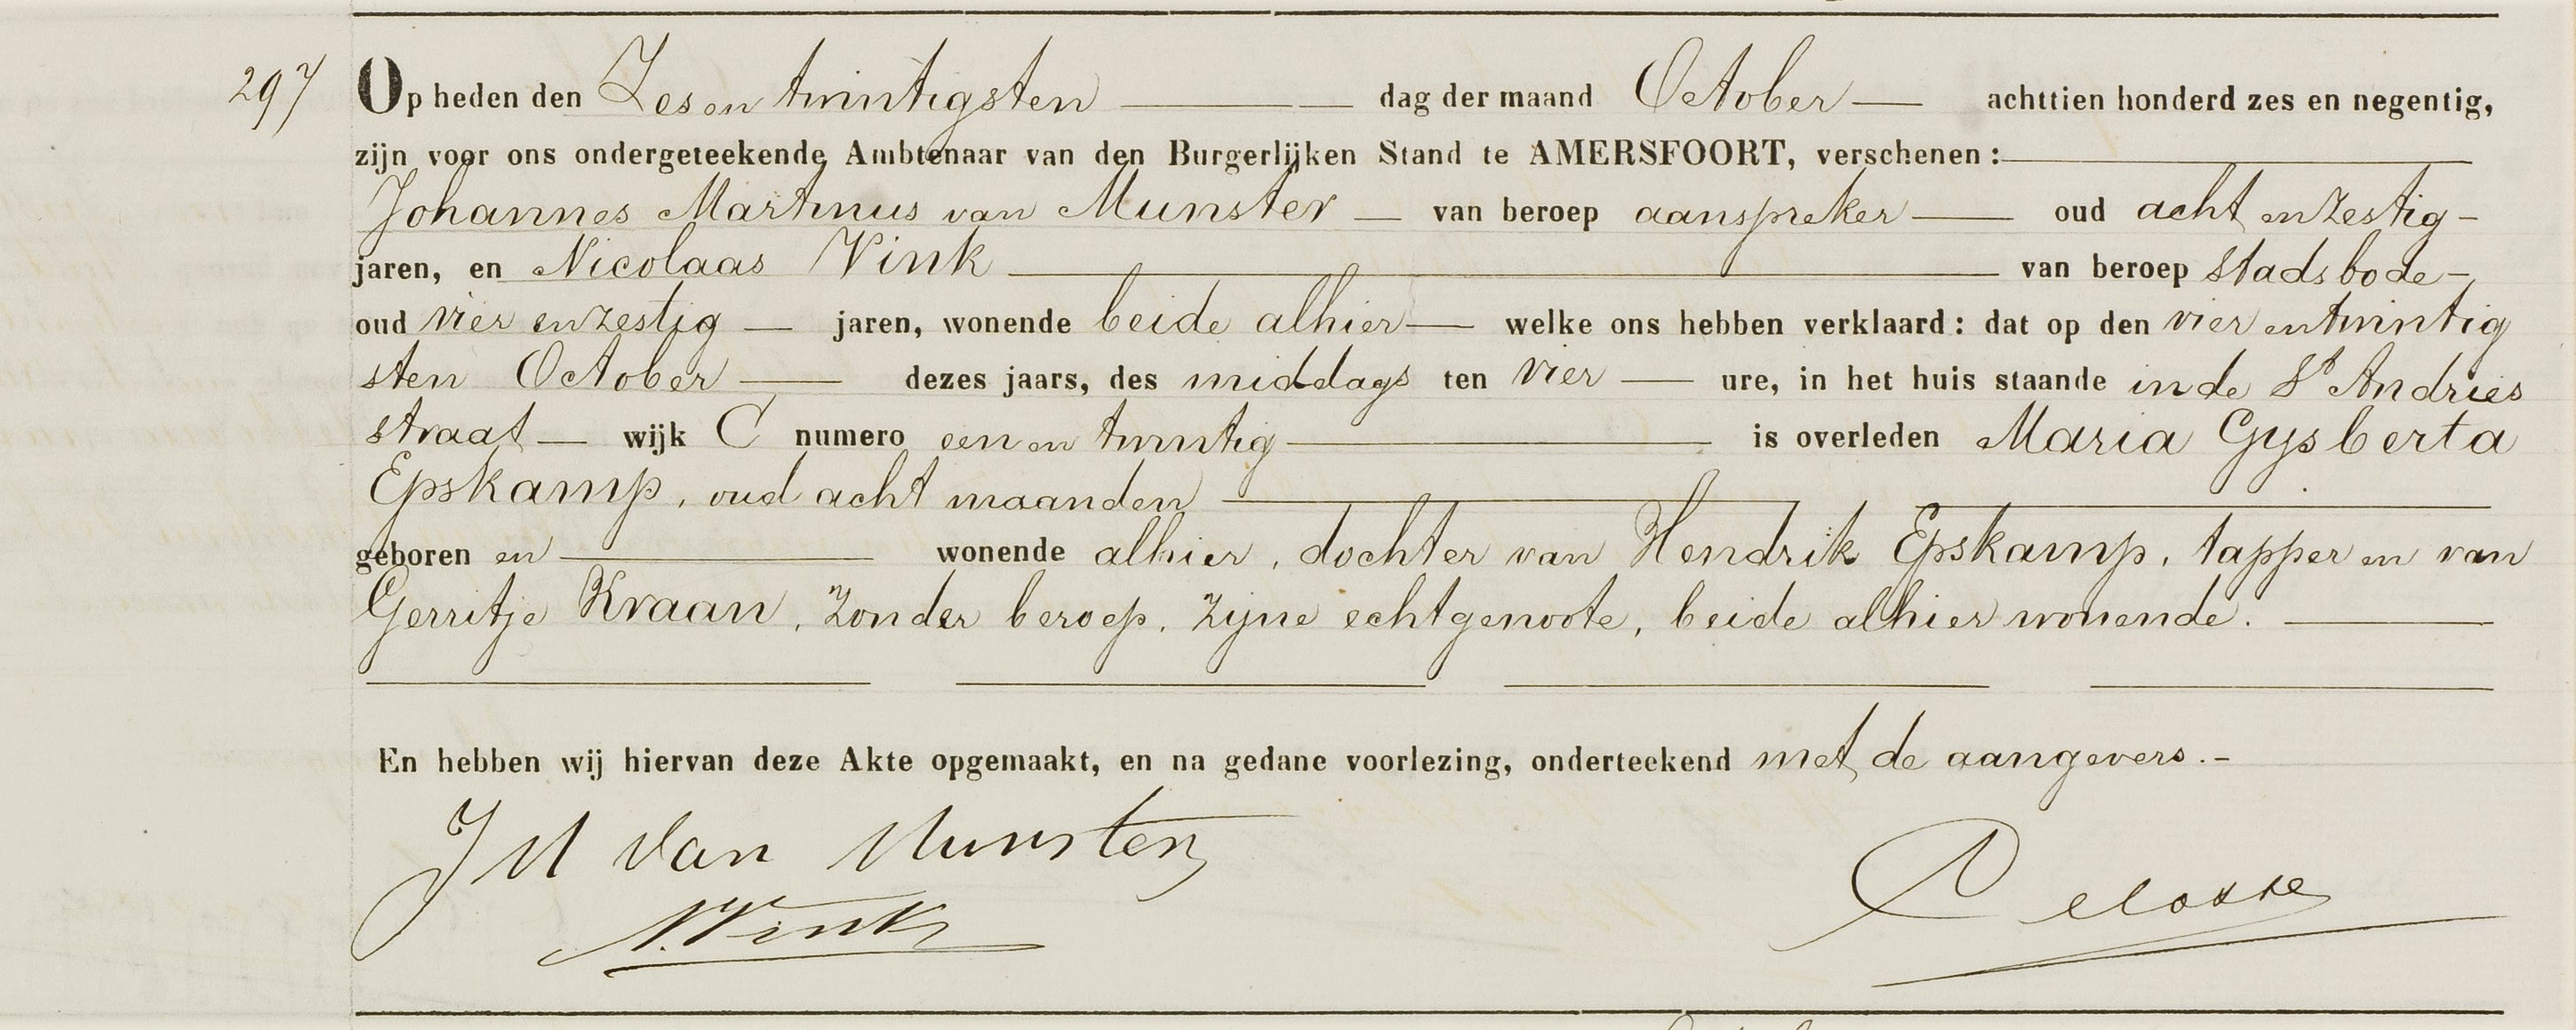 297 Op heden den Zes en twintigsten dag der maand October achttien honderd zes en negentig,
zijn voor ons ondergeteekende Ambtenaar van den Burgerlijken Stand te AMERSFOORT, verschenen :
Johannes Martinus van Munster van beroep aanspreker oud acht en zestig
jaren, en Nicolaas Vink van beroep stadsbode
oud vier en zestig jaren, wonende beide alhier welke ons hebben verklaard: dat op den vier en twintig
sten October dezes jaars, des middags ten vier ure, in het huis staande in de St Andries
straat wijk C numero een en twintig is overleden Maria Gysberta
Epskamp, oud acht maanden
geboren en wonende alhier, dochter van Hendrik Epskamp, tapper en van
Gerritje Kraan, zonder beroep, zijne echtgenoote, beide alhier wonende.
En hebben wij hiervan deze Akte opgemaakt, en na gedane voorlezing, onderteekend met de aangevers.
J M van Munster
N. Vink